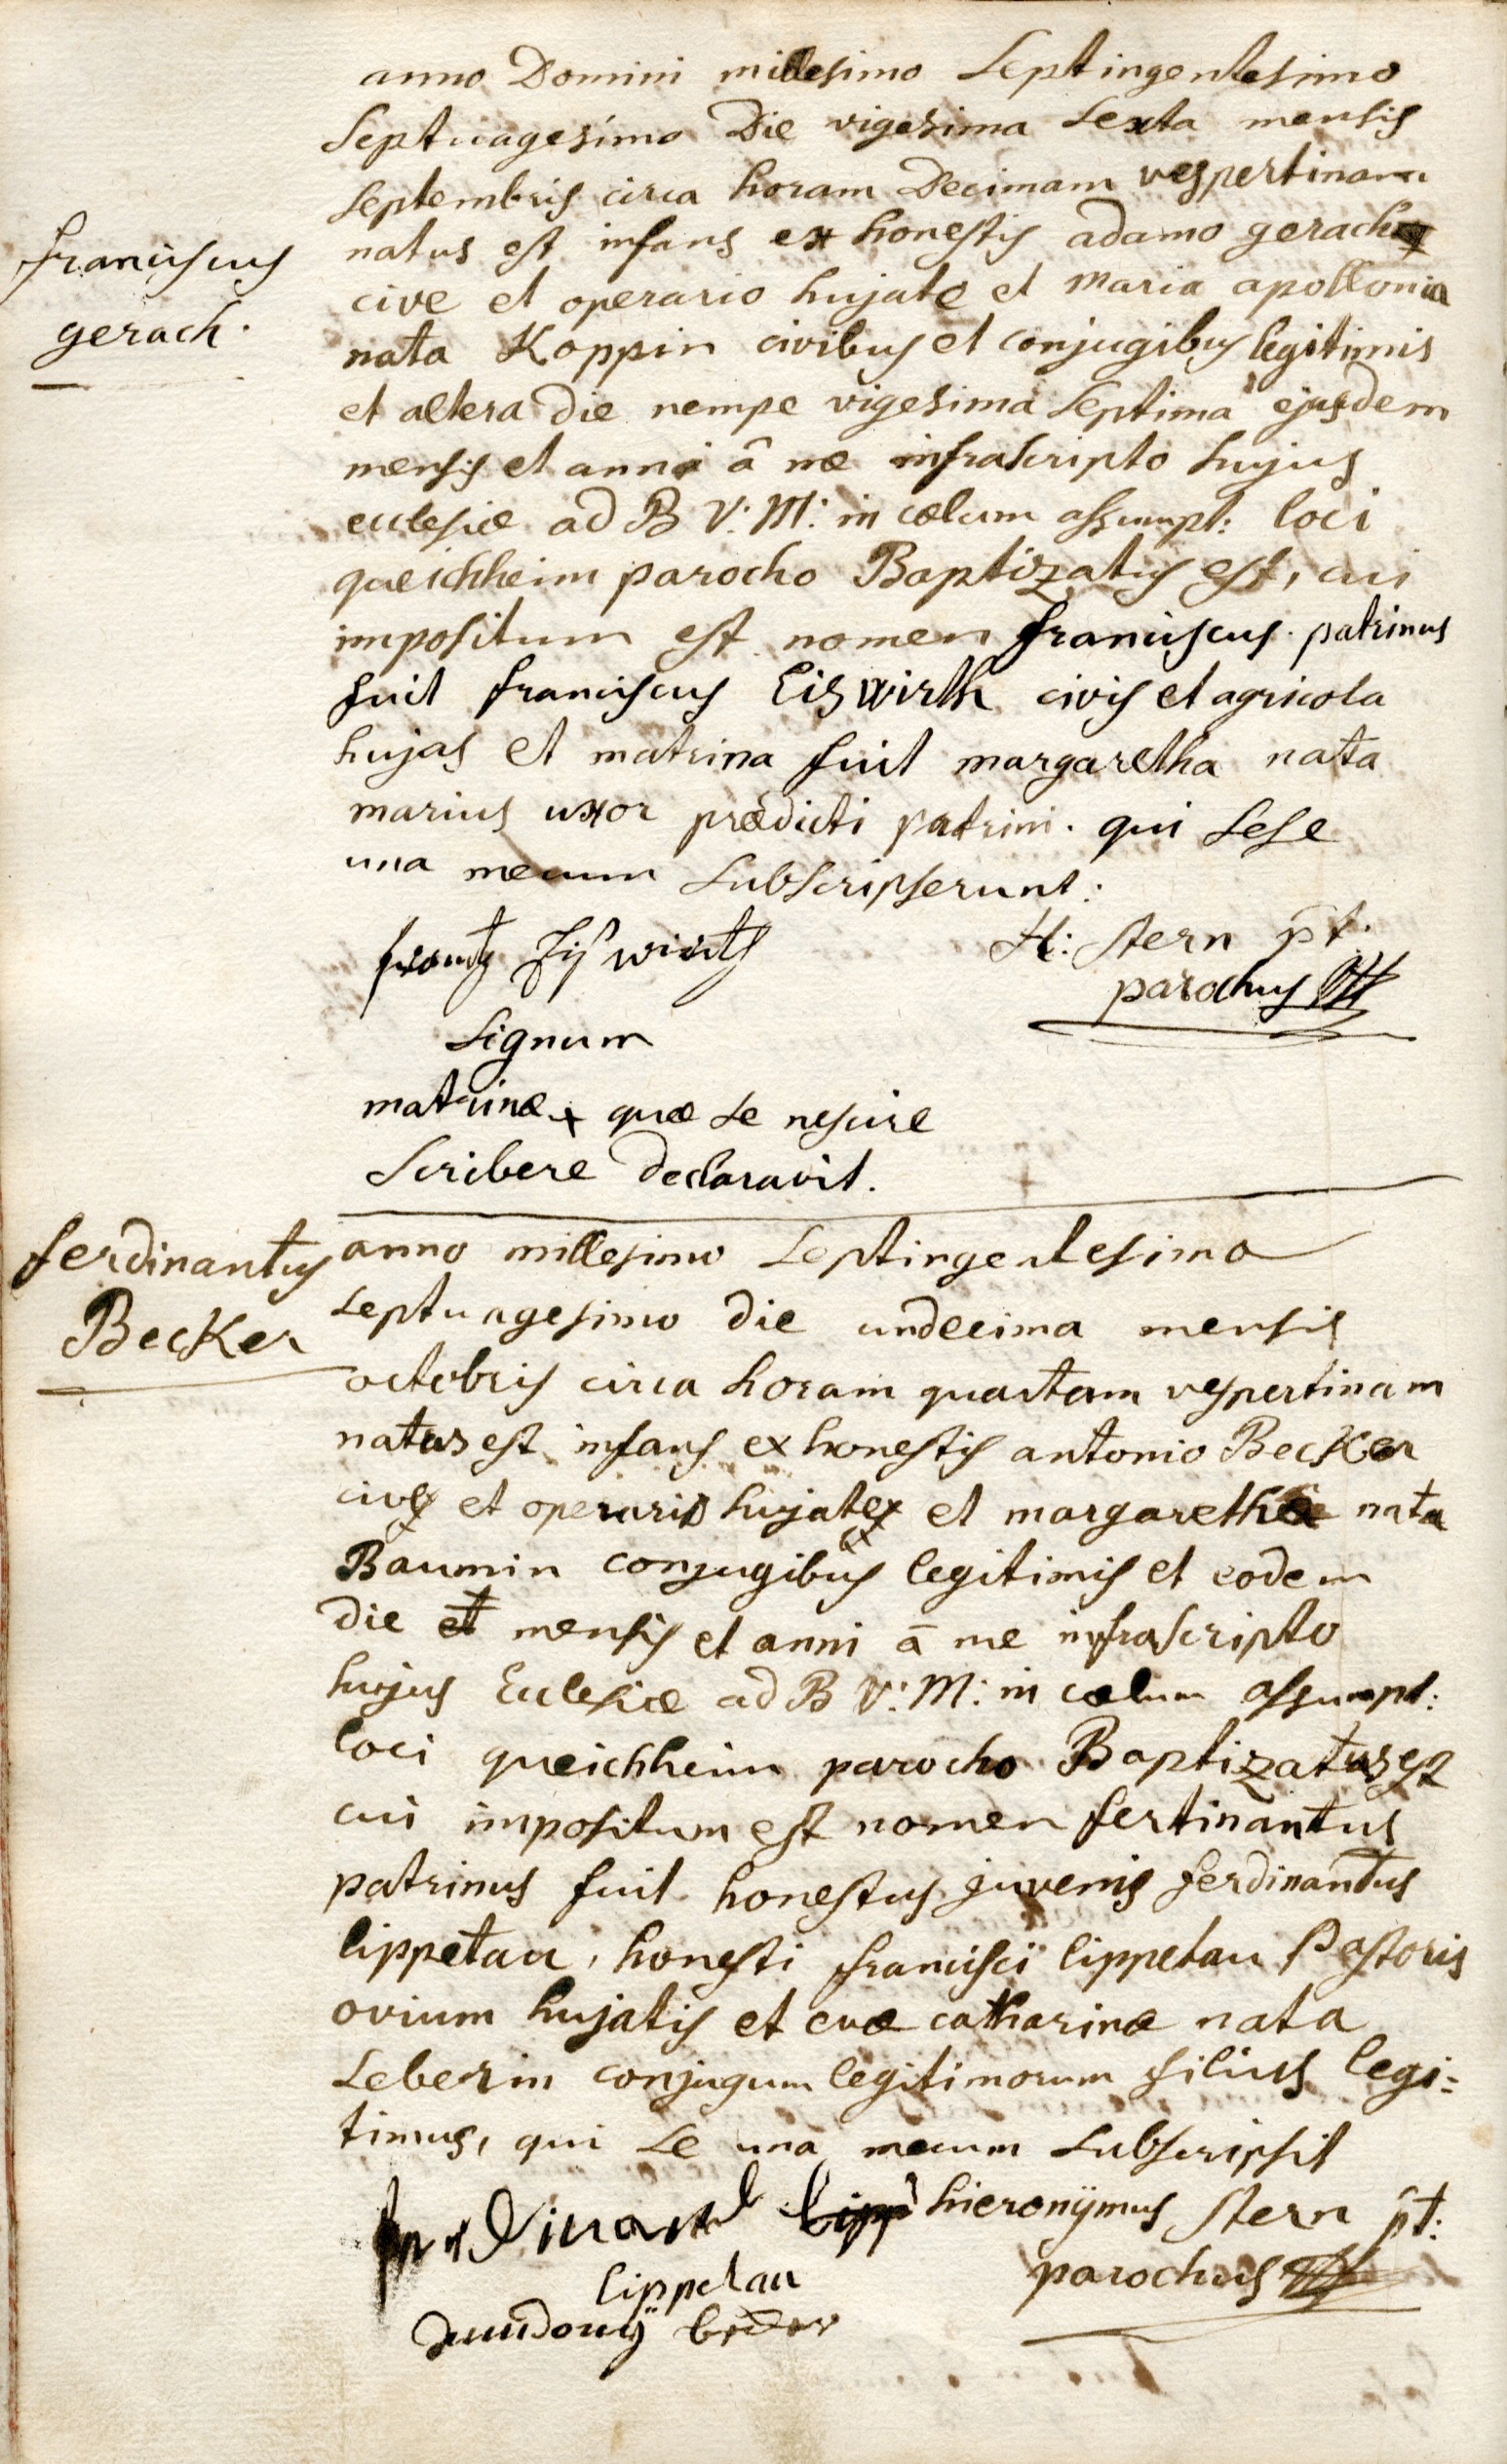 anno Domini millesimo Septingentesimo
Septuagesimo Die vigesima Sexta mensis
Septembris circa horam Decimam vespertinam
franciscus
gerach.
natus est infans ex honestis adamo gerach
cive et operario hujate et Maria apollonia
nata Koppin civibus et conjugibus legitimis
et altera Die nempe vigesima Septima ejusdem
mensis et anni â me infrascripto hujus
ecclesiæ ad B V: M: in cœlum assumpt: loci
queichheim parocho Baptizatus est, cui
impositum est nomen franciscus. patrinus
fuit franciscus Eiswirth civis et agricola
hujas et matrina fuit margaretha nata
marius uxor prædicti patrini. qui Sese
una mecum Subscripserunt:
H: Stern pt.
parochus
Signum
matrinæ x quæ Se nescire
Scribere Declaravit.
ferdinantus
Becker
anno millesimo Septingentesimo
Septuagesimo Die undecima mensis
octobris circa horam quartam vespertinam
natus est infans ex honestis antonio Becker
cive et operario hujate et margaretha nata
Baumin conjugibus legitimis et eodem
Die et mensis et anni â me infrascripto
hujus Ecclesiæ ad B V: M: in cœlum assumpt:
loci queichheim parocho Baptizatus est
cui impositum est nomen fertinantus
patrinus fuit honestus juvenis ferdinantus
lippetau, honesti francisci lippetau Pastoris
ovium hujatis et evæ catharinæ nata
Leberin conjugum legitimorum filius legi=
timus, qui Se una mecum Subscripsit
lipp hieronÿmus Stern pt:
lippetau parochus